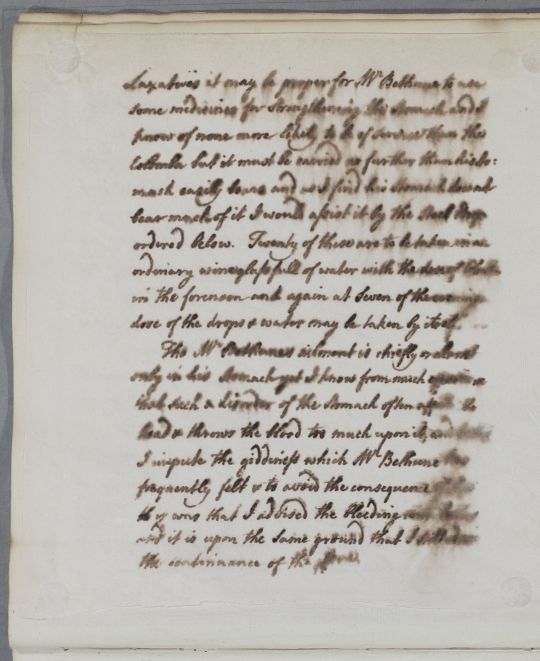 Laxatives it may be proper for Mr Bethune to use
some medicines for strengthening his stomach and I
know of none more likely to be of service than the
Colomba but it must be carried no further than his sto=
mach easily bears and as I find his stomach does not
bear much of it I would assist it by the Steel drops
ordered below. Twenty of these are to be taken in an
ordinary wineglassfull of water with the dose of
in the forenoon and again at seven of the evening
dose of the drops & water may be taken by itself.
Tho Mr Bethunes ailment is chiefly
only in his stomach yet I know from much experience
that such a disorder of the stomach often the
head & throws the blood too much upon it, and
I impute the giddiness which Mr Bethune has
frequently felt & to avoid the consequence
it was that I advised the bleeding
and it is upon the same ground that I
the continuance of the